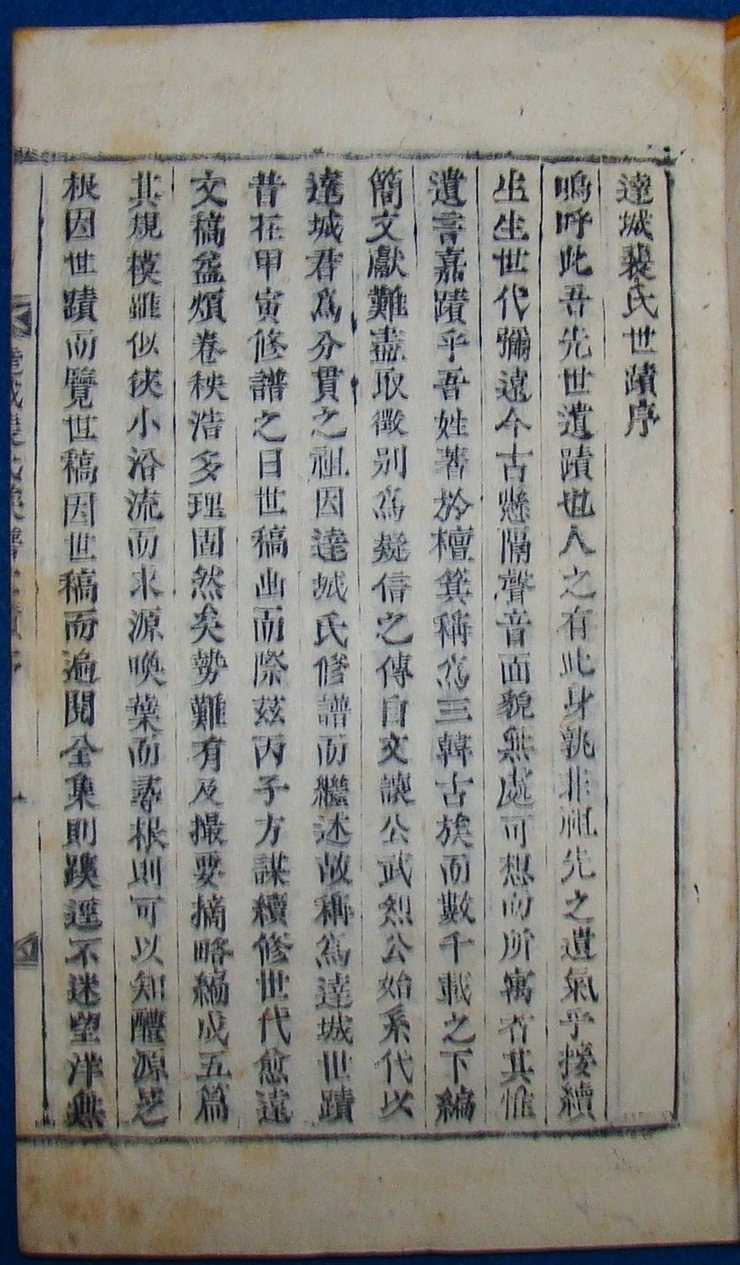 達城裵氏世蹟序
嗚呼此吾先世遺蹟也人之有此身孰非祖先之遺氣乎接續
生生世代彌遠今古懸隔聲音面貌無處可想而所寓者其惟
遺言嘉蹟乎吾姓著於檀箕稱爲三韓古族而數千載之下編
簡文獻難盡取徵別爲疑信之傳自文讓公武烈公始系代以
達城君爲分貫之祖因達城氏修譜而繼述故稱爲達城世蹟
昔在甲寅修譜之日世稿出而際玆丙子方謀續修世代愈遠
文稿益煩卷秩浩多理固然矣勢難有及撮要摘略編成五篇
其規模雖似狹小沿流而求源喚葉而尋根則可以知醴源芝
根因世蹟而覽世稿因世稿而遍閱全集則蹊逕不迷望洋無
達城裵氏族譜世蹟序